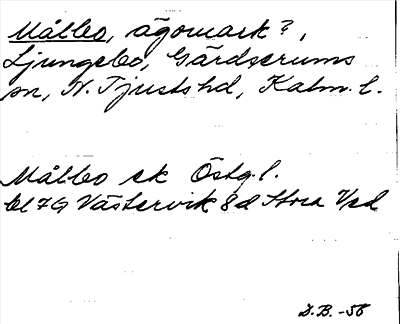 Målbo, ägomark?,
Ljungsbo, Gärdserums
sn, N. Tjusts hd, Kalm. l.
Målbo ek Östg. l.
bl 7G Västervik 8d Stora Ved
D.B. -58